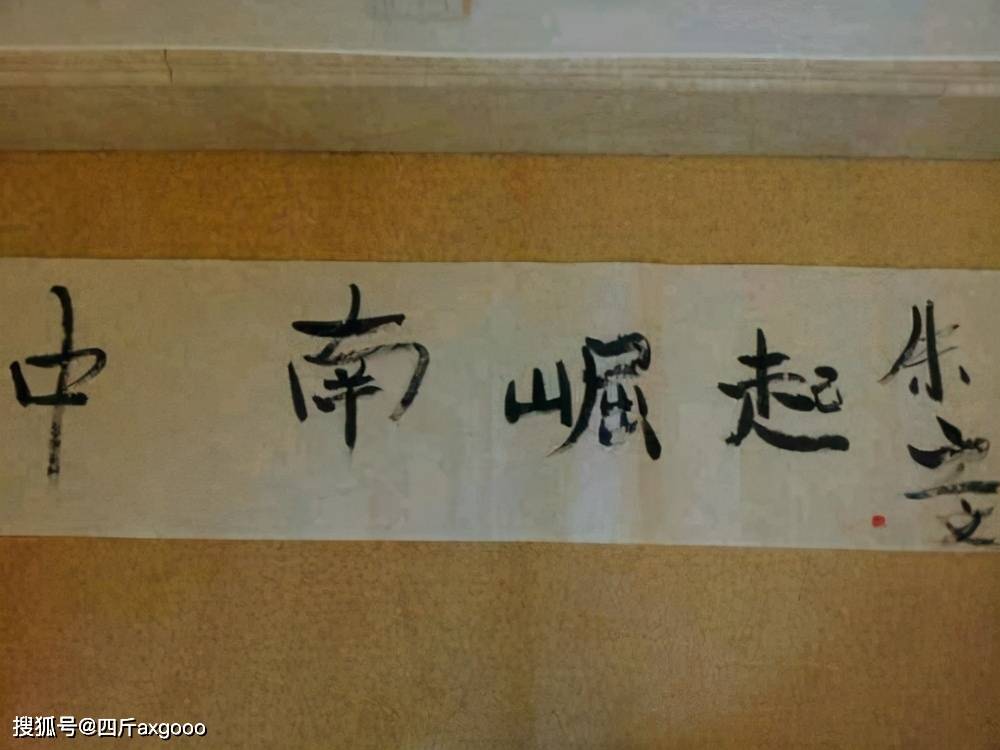 中南崛起
朱
搜狐号@四斤axgooo